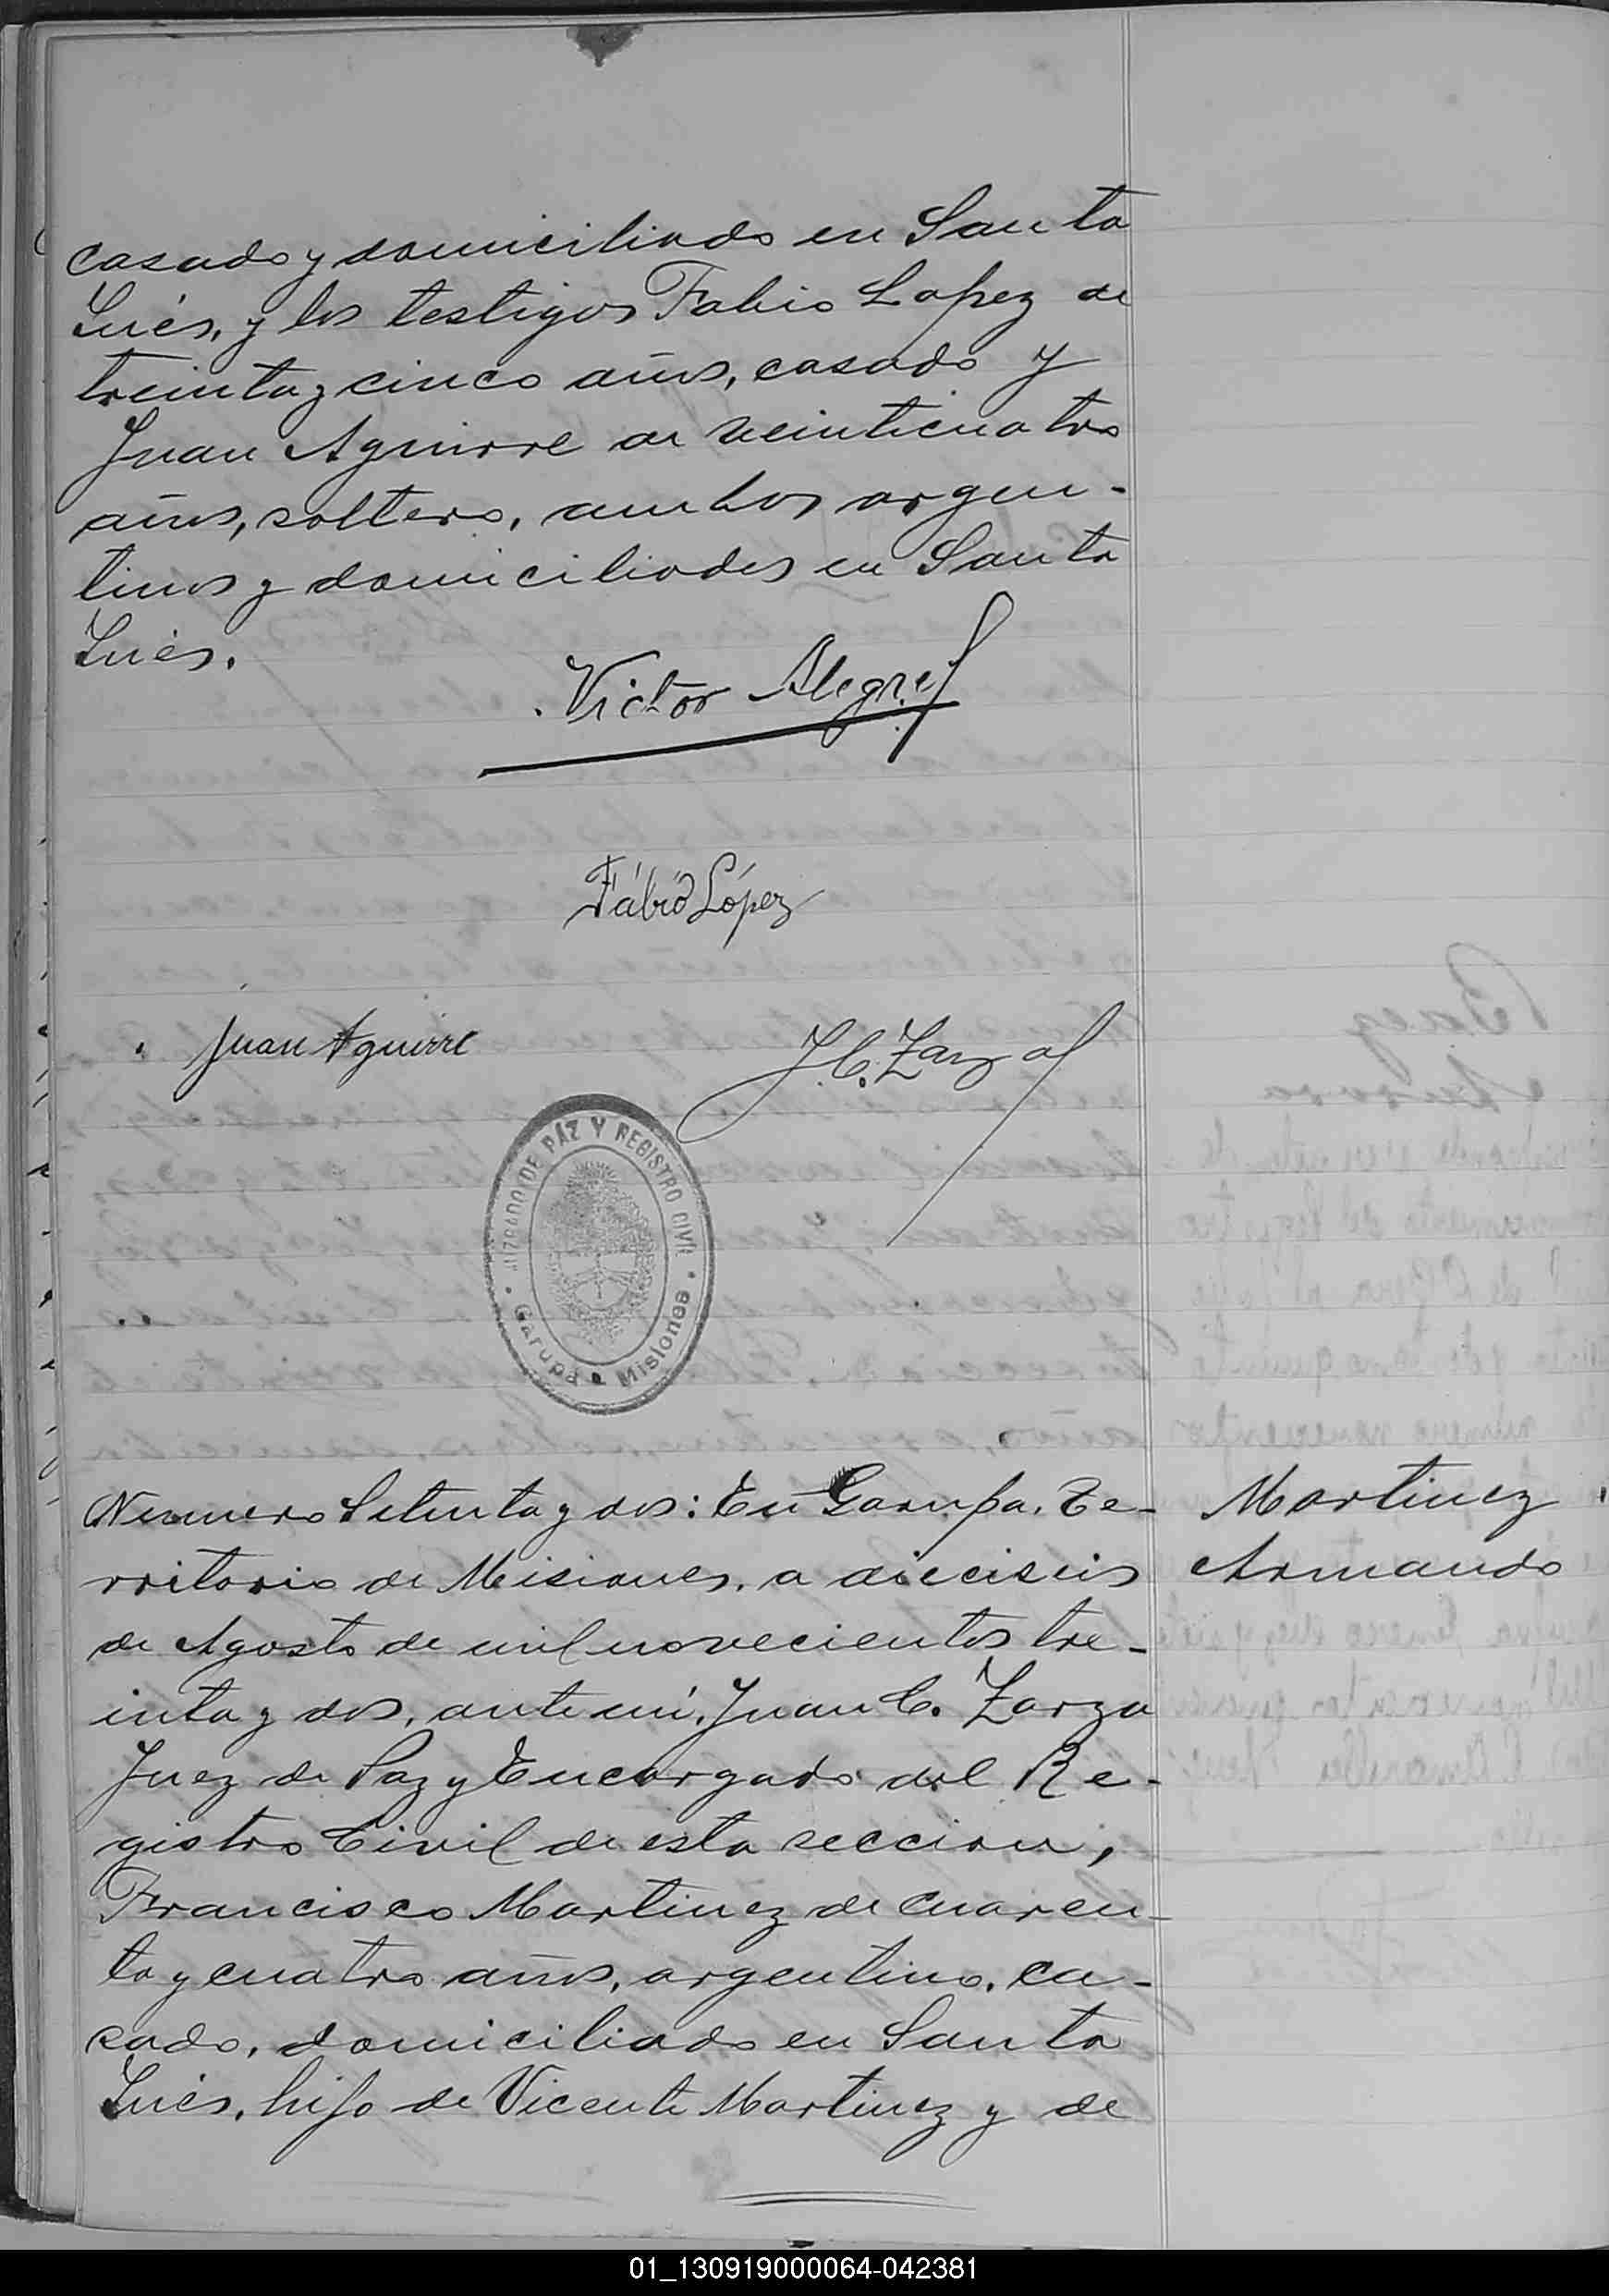 casado y domiciliado en Santa
Inés, y los testigos Fabio Lopez de
treinta y cinco años, casado y
Juan Aguirre de veinticuatro
años, soltero, ambos argen-
tinos y domiciliados en Santa
Inés.
Victor Alegre
Fábio López
Juan Aguirre
J. C. Zarza
JUZGADO DE PAZ Y REGISTRO CIVIL
Garupá Misiones
Numero Setenta y dos: En Garupa, Te-
rritorio de Misiones, a dieciseis
de Agosto de mil novecientos tre-
inta y dos, ante mí, Juan C. Zarza
Juez de Paz y Encargado del Re-
gistro Civil de esta seccion,
Francisco Martinez de cuaren-
ta y cuatro años, argentino, ca-
sado, domiciliado en Santa
Inés, hijo de Vicente Martinez y de
Martinez
Armando
01_130919000064-042381